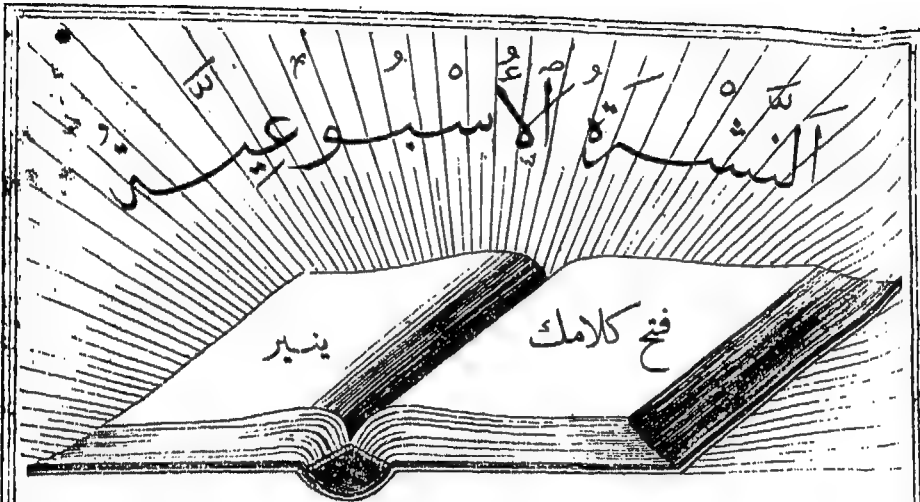 اَلنَّشْرَةُ الْأُسْبُوعِيَّةُ
فتح كلامك
ينير